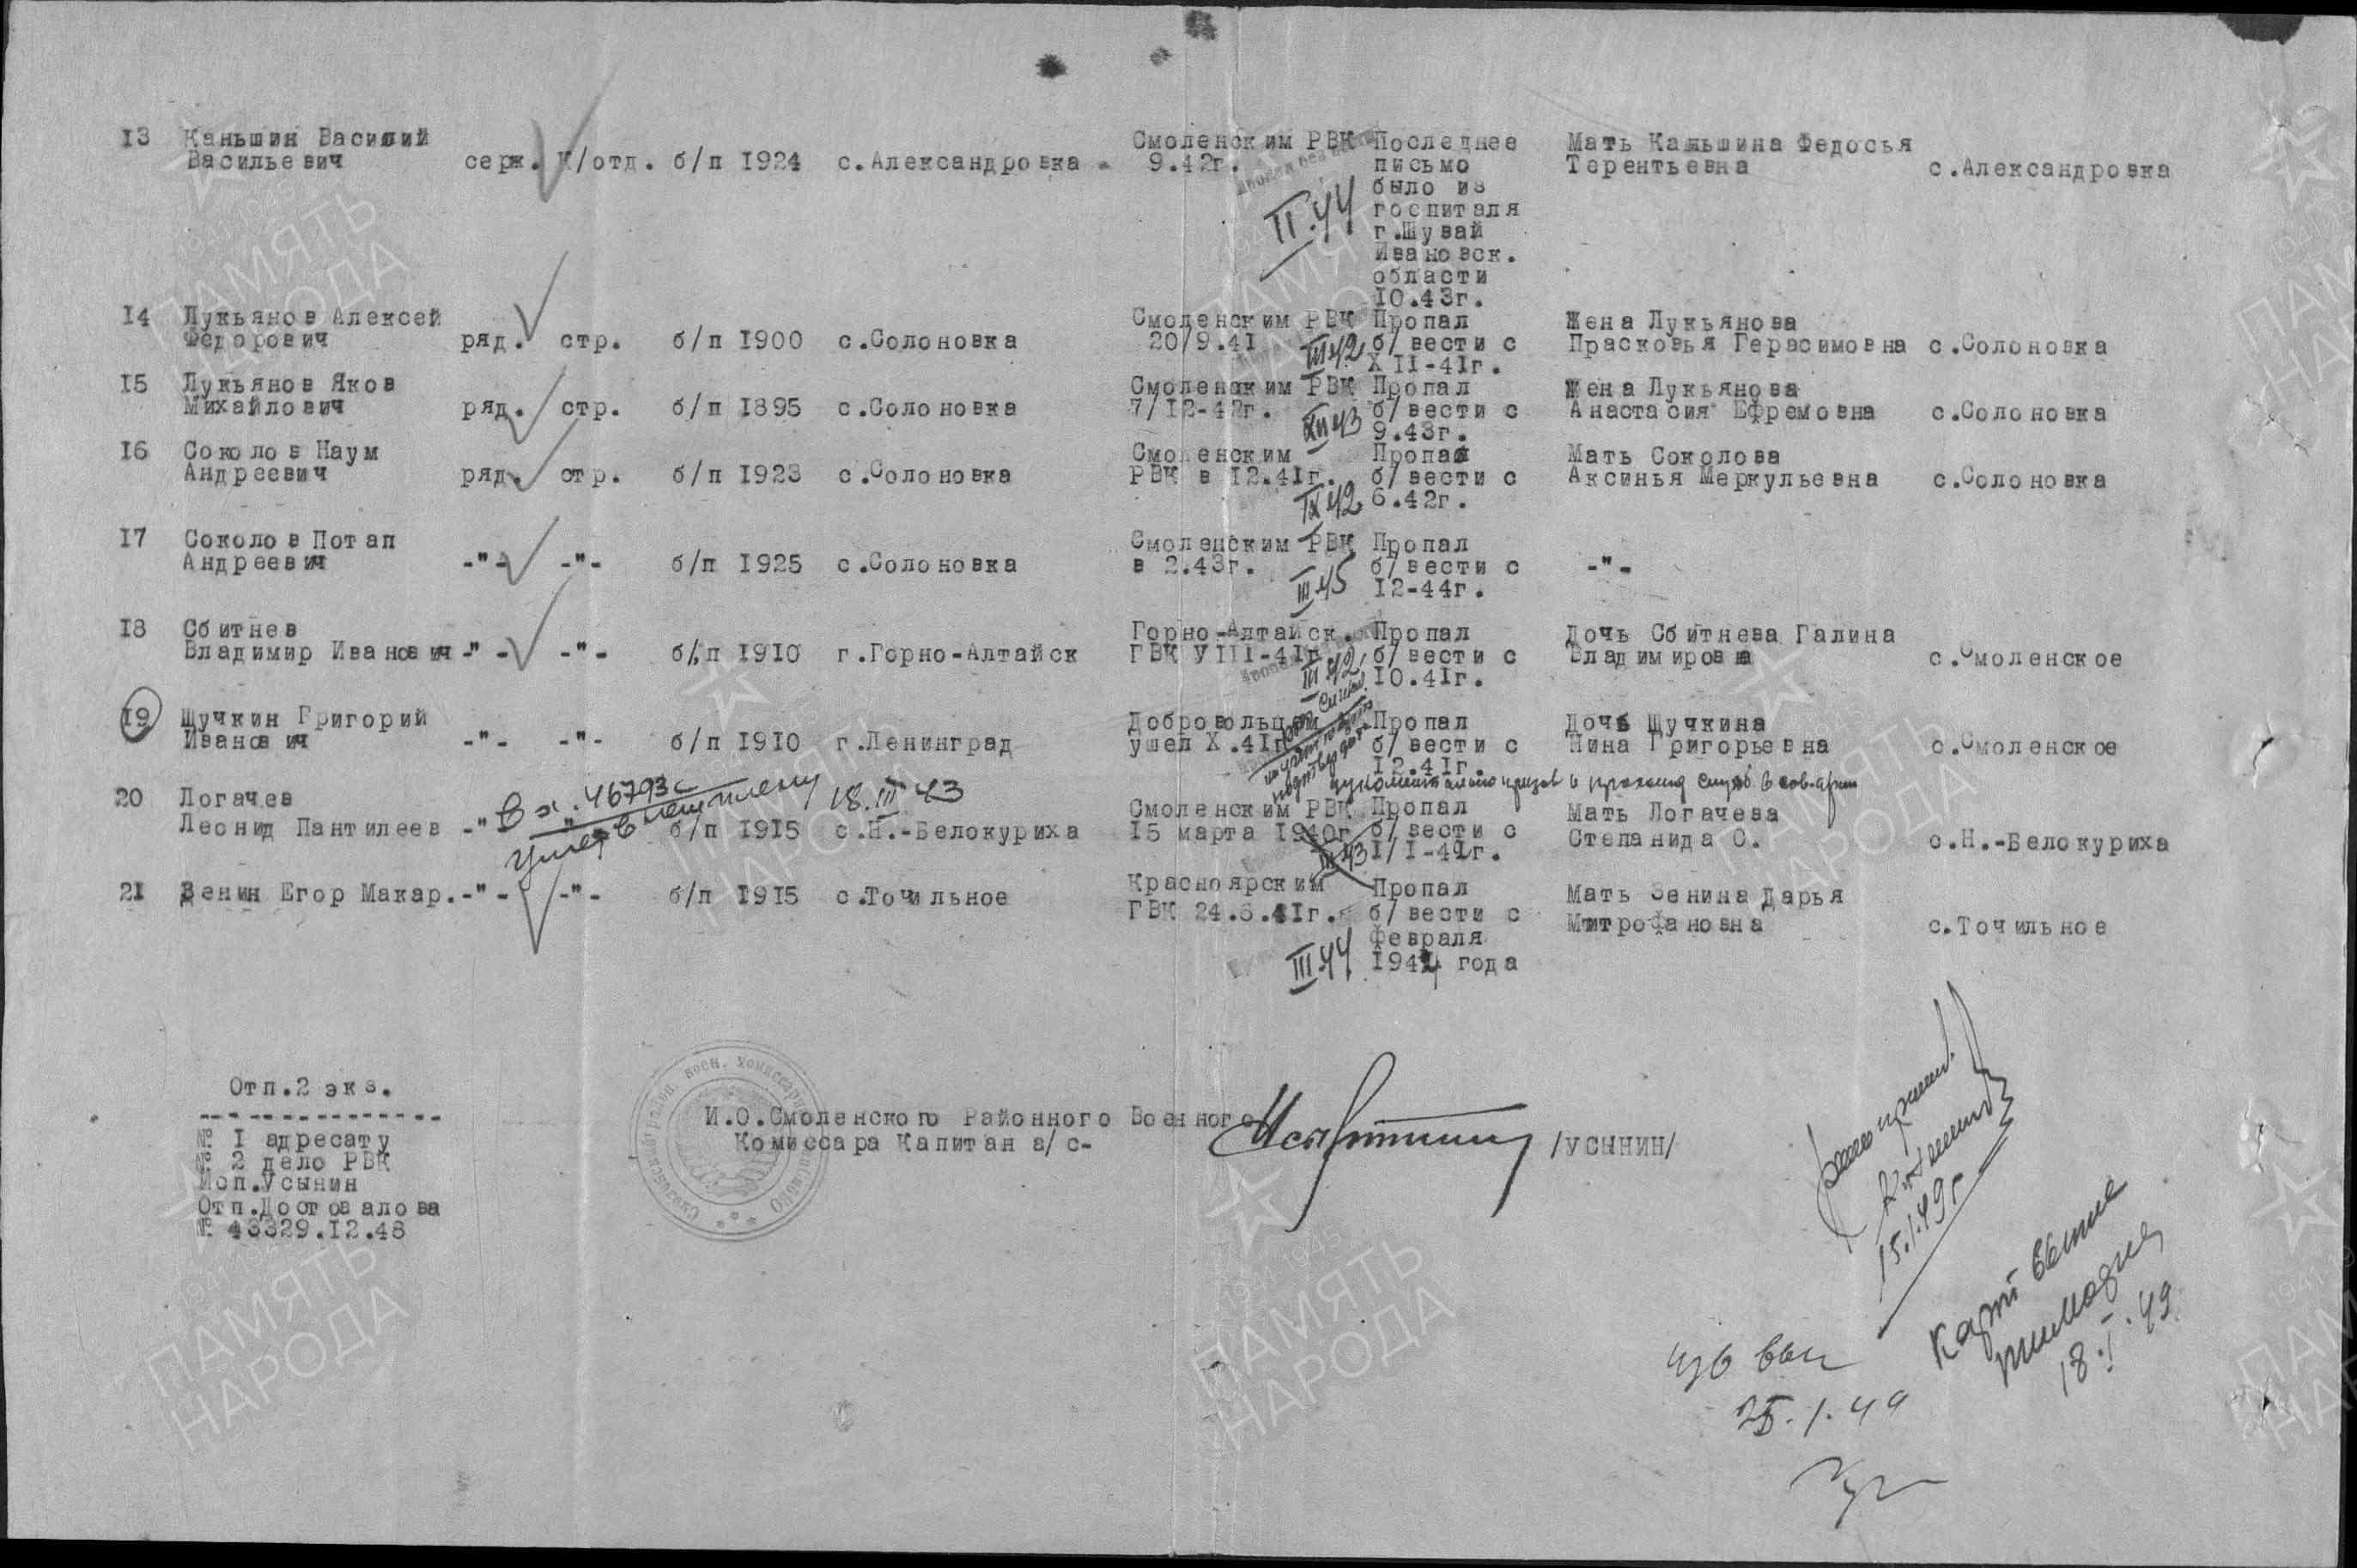 13 Каньшин Василий Смоленским РВК Последнее Мать Каньшина Федосья
Васильевич серж. К/отд. б/п 1924 с.Александровка - 9.42г. письмо Терентьевна с.Александровка
было из
II.44 госпиталя
г.Шувай
Ивановск.
области
10.43г.
14 Лукьянов Алексей Смоленским РВК Пропал Жена Лукьянова
Федорович ряд. стр. б/п 1900 с.Солоновка 20/9.41 б/вести с Прасковья Герасимовна с.Солоновка
III 42 XII-41г.
15 Лукьянов Яков Смоленским РВК Пропал Жена Лукьянова
Михайлович ряд. стр. б/п 1895 с.Солоновка 7/12-42г. б/вести с Анастасия Ефремовна с.Солоновка
XII 43 9.43г.
16 Соколов Наум Смоленским Пропал Мать Соколова
Андреевич ряд. стр. б/п 1923 с.Солоновка РВК в 12.41г. б/вести с Аксинья Меркульевна с.Солоновка
IX 42 6.42г.
17 Соколов Потап Смоленским РВК Пропал
Андреевич -"- -"- б/п 1925 с.Солоновка в 2.43г. б/вести с -"-
III 45 12-44г.
18 Сбитнев Горно-Алтайск. Пропал Дочь Сбитнева Галина
Владимир Иванович -"- -"- б/п 1910 г.Горно-Алтайск ГВК УIII-41г. б/вести с Владимировна с.Смоленское
III 42 10.41г.
19 Щучкин Григорий Добровольцем Пропал Дочь Щучкина
Иванович -"- -"- б/п 1910 г.Ленинград ушел X.41г. б/вести с Нина Григорьевна с.Смоленское
12.41г.
Вх. 46793с
умер в нем плену 18.III 43
20 Логачев Смоленским РВК Пропал Мать Логачева
Леонид Пантилеев -"- " б/п 1915 с.Н.-Белокуриха 15 марта 1940г б/вести с Степанида С. с.Н.-Белокуриха
III 43 1/1-42г.
21 Зенин Егор Макар. -"- -"- б/п 1915 с.Точильное Красноярским Пропал Мать Зенина Дарья
ГВК 24.6.41г. б/вести с Митрофановна с.Точильное
февраля
III 44 1944 года
Отп.2 экз.
№ 1 адресату
№ 2 дело РВК
Исп.Усынин
Отп.Достовалова
№ 43329.12.48
И.О.Смоленского Районного Военного
Комиссара Капитан а/с- /УСЫНИН/
15.1.49г
18.I.49
25.1.49
ПАМЯТЬ
НАРОДА
1941 1945